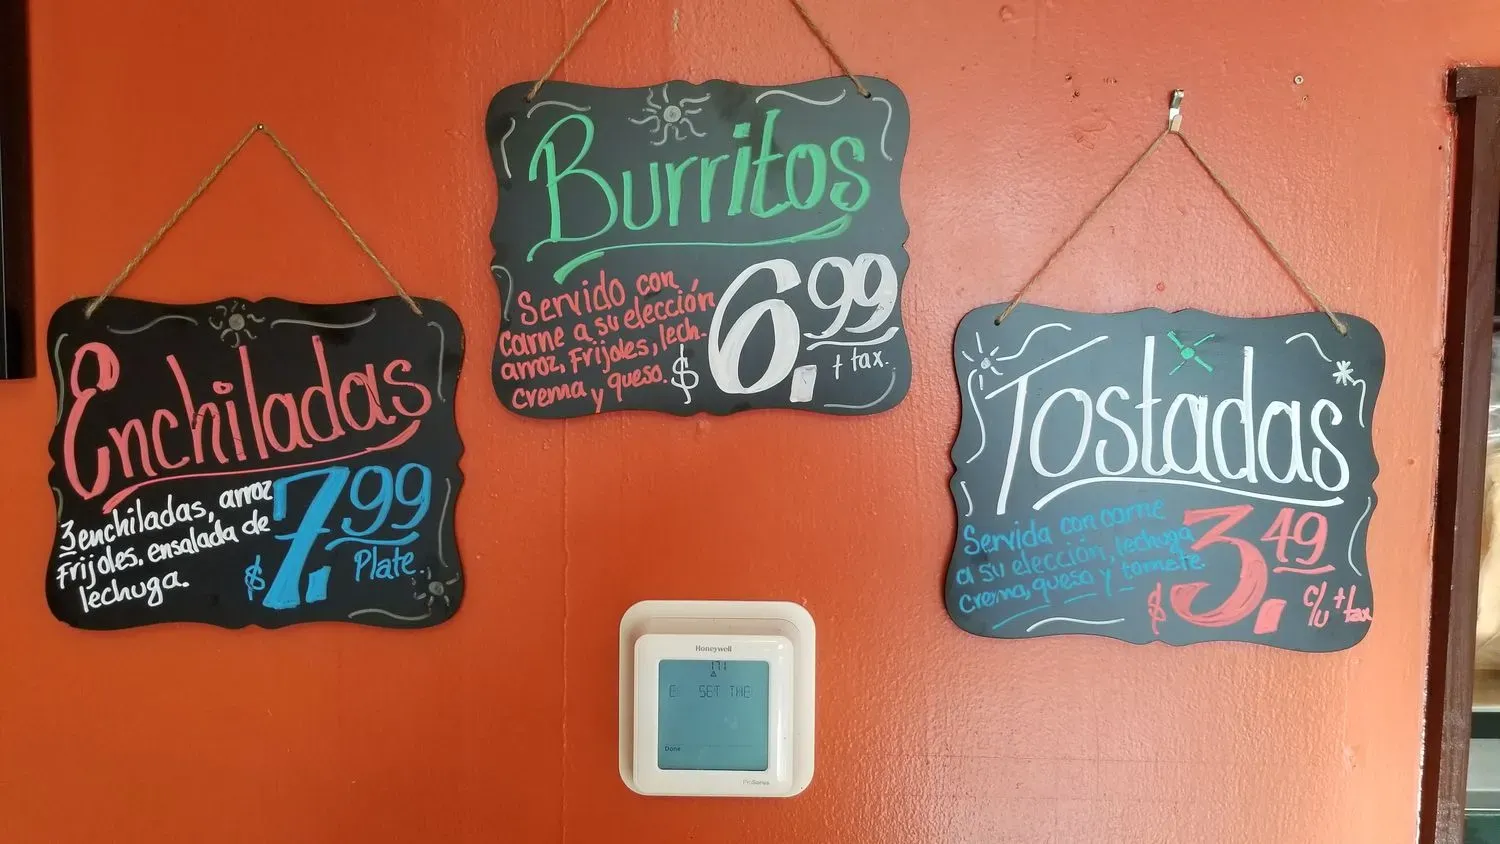 Enchiladas
3 enchiladas, arroz
Frijoles, ensalada de
lechuga.
$7.99
Plate.
Burritos
Servido con
carne a su elección
arroz, Frijoles, lech.
crema y queso.
$6.99
+ tax.
Tostadas
Servida con carne
a su elección, lechuga
crema, queso y tomate.
$3.49
c/u + tax
Honeywell
SET THE
Done
ProSeries